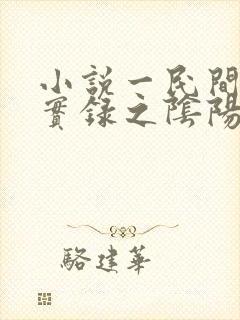 小説一民間
實錄之陰陽
駱建華